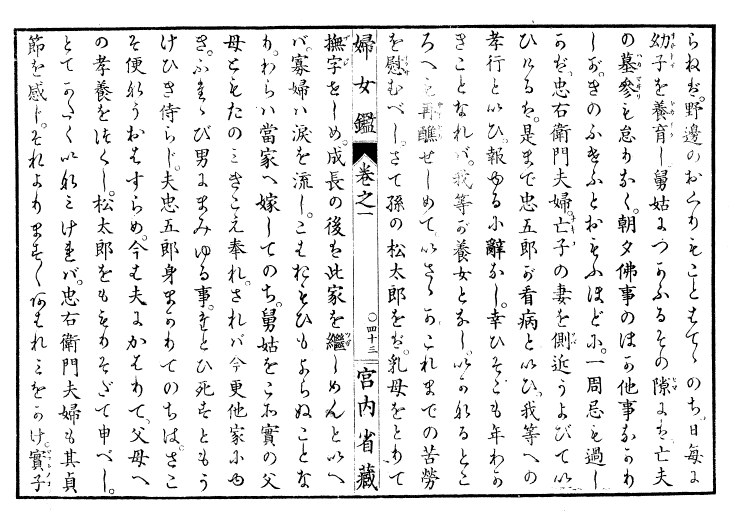 らねば。野邊のおくりもことはてゝのち。日毎に
幼子を養育し舅姑につかふるその隙には亡夫
の墓參も怠りなく。朝夕佛事のほか他事なかり
しが。きのふけふとおもふほどに。一周忌も過し
かば。忠右衛門夫婦。亡子の妻を側近うよびていへ
ひけるは。是まで忠五郎が看病といひ。我等への
孝行といひ。報ゆるに辭なし。幸ひそこも年わか
きことなれば。我等が養女となし。いかなるとこ
ろへも再醮せしめて。いさゝかこれまでの苦勞
を慰むべし。さて孫の松太郎をば。乳母をとりて
婦女鑑 卷之一 ○四十三 宮内省藏
撫字をしめ。成長の後は此家を繼しめんといへ
ば。寡婦は涙を流し。こはおもひもよらぬことな
り。わらは當家へ嫁してのち。舅姑をこそ實の父
母ともたのみきこえ奉れ。されば今更他家にゆ
き。ふたゝび男にまみゆる事。たとひ死すともう
けひき侍らじ。夫忠五郎身まかりてのちは。さこ
そ便なうおはすらめ。今は夫にかはりて。父母へ
の孝養をつくし。松太郎をももりそだて申べし。
とてかたくいなみければ。忠右衛門夫婦も其貞
節を感じ。それよりますゝゝあはれみをかけ。實子